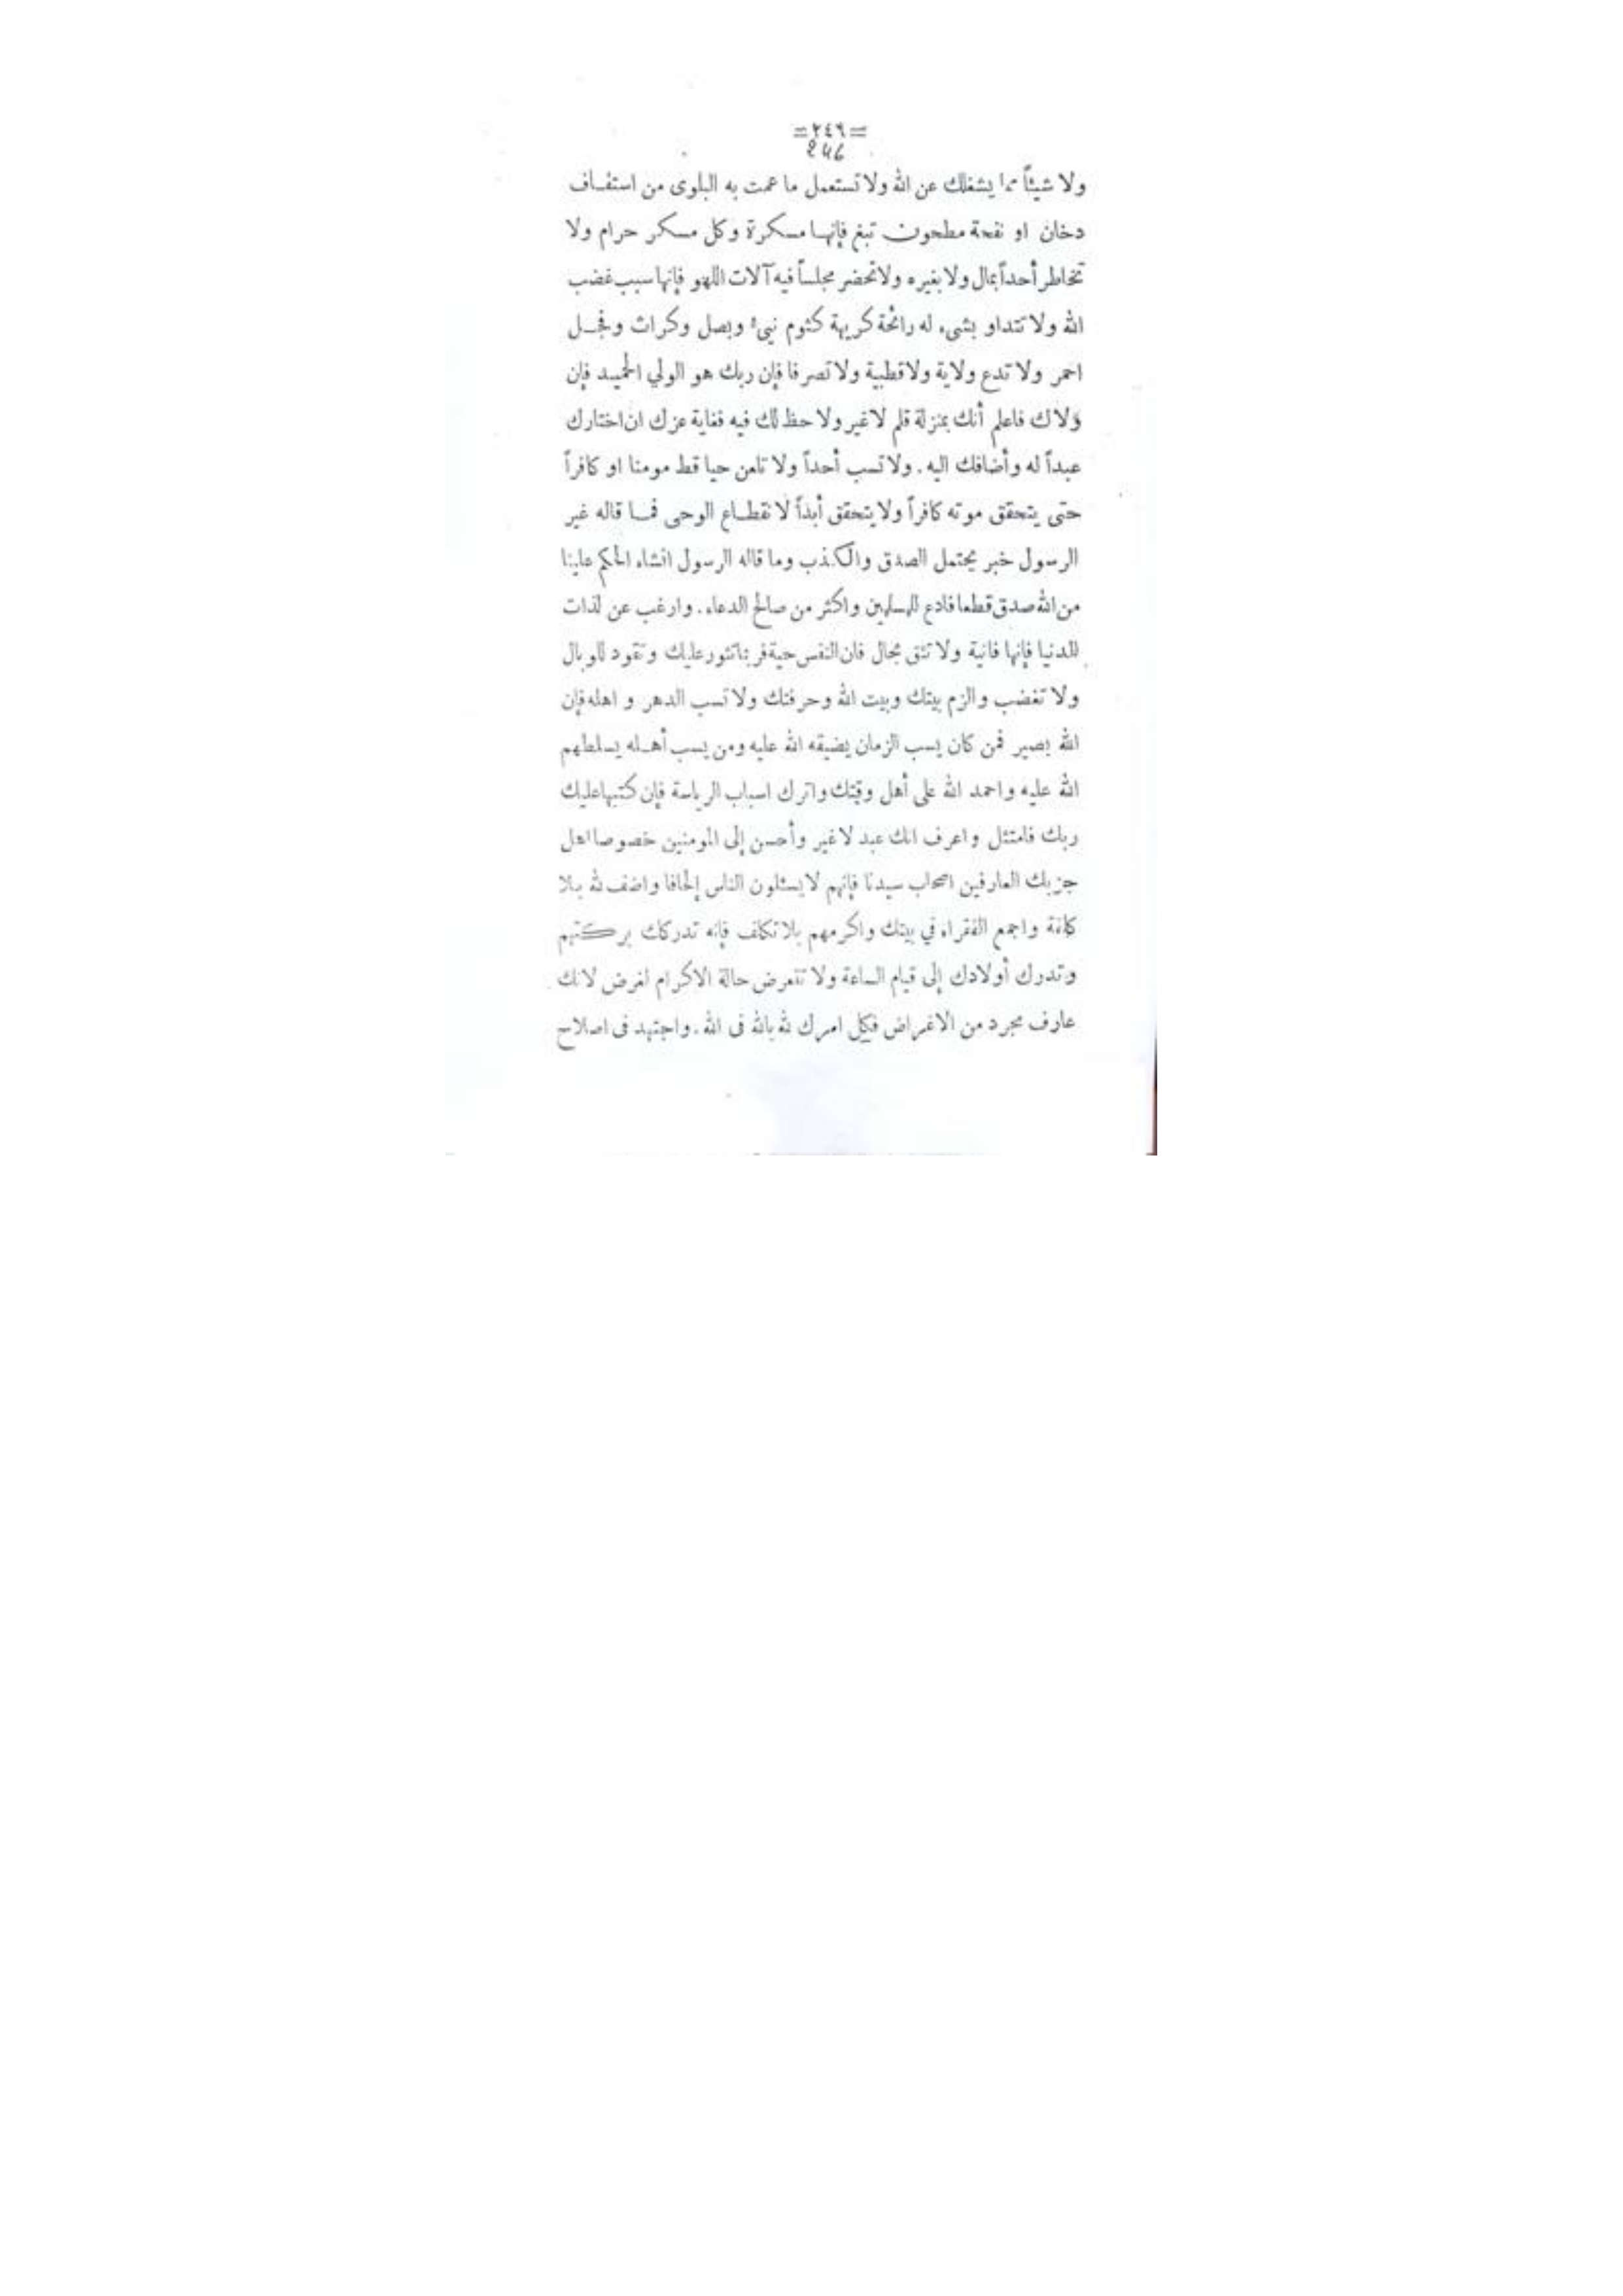 =٢٤٦=
246
ولا شيئاً مما يشغلك عن الله ولا تستعمل ما عمت به البلوى من استفاف
دخان او نفحة مطحون تبغ فإنها مسكرة وكل مسكر حرام ولا
تخاطر أحداً بمال ولا بغيره ولا تحضر مجلساً فيه آلات اللهو فإنها سبب غضب
الله ولا تتداو بشيء له رائحة كريهة كثوم نيئ وبصل وكراث وفجل
احمر ولا تدع ولاية ولا قطبية ولا تصرفا فإن ربك هو الولي الحميد فإن
ولاك فاعلم أنك بمنزلة قلم لا غير ولا حظ لك فيه فغاية عزك ان اختارك
عبداً له وأضافك اليه. ولا تسب أحداً ولا تلعن حيا قط مومنا او كافراً
حتى يتحقق موته كافراً ولا يتحقق أبداً لانقطاع الوحى فما قاله غير
الرسول خبر يحتمل الصدق والكذب وما قاله الرسول انشاء الحكم علينا
من الله صدق قطعا فادع للمسلمين واكثر من صالح الدعاء. وارغب عن لذات
الدنيا فإنها فانية ولا تثق بحال فان النفس حية فربما تثور عليك وتقود للوبال
ولا تغضب والزم بيتك وبيت الله وحرفتك ولا تسب الدهر و اهله فإن
الله بصير فمن كان يسب الزمان يضيقه الله عليه ومن يسب أهله يسلطهم
الله عليه واحمد الله على أهل وقتك واترك اسباب الرياسة فإن كتبها عليك
ربك فامتثل واعرف انك عبد لا غير وأحسن إلى المومنين خصوصا اهل
حزبك العارفين اصحاب سيدنا فإنهم لا يسئلون الناس إلحافا واضف لله بلا
كلفة واجمع الفقراء في بيتك واكرمهم بلا تكلف فإنه تدركك بركتهم
وتدرك أولادك إلى قيام الساعة ولا تتعرض حالة الاكرام لغرض لانك
عارف مجرد من الاغراض فكل امرك لله بالله فى الله. واجتهد فى اصلاح